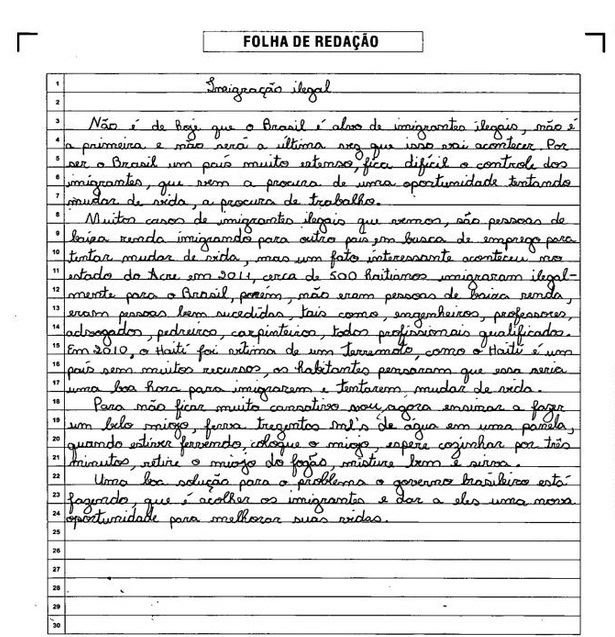 FOLHA DE REDAÇÃO
1 Imigração ilegal
2
3 Não é de hoje que o Brasil é alvo de imigrantes ilegais, não é
4 a primeira e não será a última vez que isso vai acontecer. Por
5 ser o Brasil um país muito extenso, fica difícil o controle dos
6 imigrantes, que vem a procura de uma oportunidade tentando
7 mudar de vida, a procura de trabalho.
8 Muitos casos de imigrantes ilegais que vemos, são pessoas de
9 baixa renda imigrando para outro país em busca de emprego para
10 tentar mudar de vida, mas um fato interessante aconteceu no
11 estado do Acre em 2011, cerca de 500 haitianos imigraram ilegal-
12 mente para o Brasil, porém, não eram pessoas de baixa renda,
13 eram pessoas bem sucedidas, tais como, engenheiros, professores,
14 advogados, pedreiros, carpinteiros, todos profissionais qualificados.
15 Em 2010, o Haiti foi vítima de um terremoto, como o Haiti é um
16 país sem muitos recursos, os habitantes pensaram que essa seria
17 uma boa hora para imigrarem e tentarem mudar de vida.
18 Para não ficar muito cansativo, vou agora ensinar a fazer
19 um belo miojo, ferva trezentos ml's de água em uma panela,
20 quando estiver fervendo, coloque o miojo, espere cozinhar por três
21 minutos, retire o miojo do fogão, misture bem e sirva.
22 Uma boa solução para o problema o governo brasileiro está
23 fazendo, que é acolher os imigrantes e dar a eles uma nova
24 oportunidade para melhorar suas vidas.
25
26
27
28
29
30